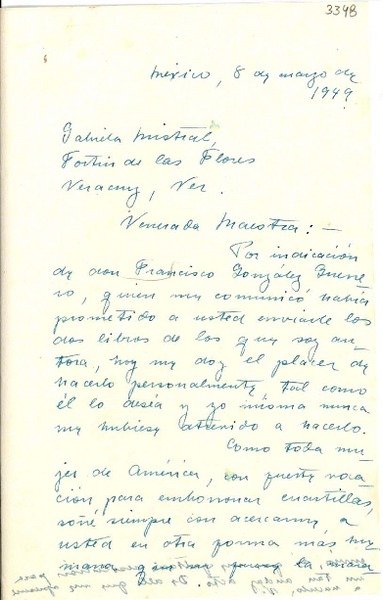 3348
México, 8 de marzo de
1949
Gabriela Mistral,
Fortín de las Flores
Veracruz, Ver.
Venerada Maestra: -
Por indicación
de don Francisco González Guerre-
ro, quien me comunicó había
prometido a usted enviarle los
dos libros de los que soy au-
tora, hoy me doy el placer de
hacerlo personalmente tal como
él lo desea y yo misma nunca
me hubiese atrevido a hacerlo.
Como toda mu-
jer de América, con
vocación para emborronar cuartillas,
soñé siempre con acercarme a
usted en otra forma más hu-
mana que me